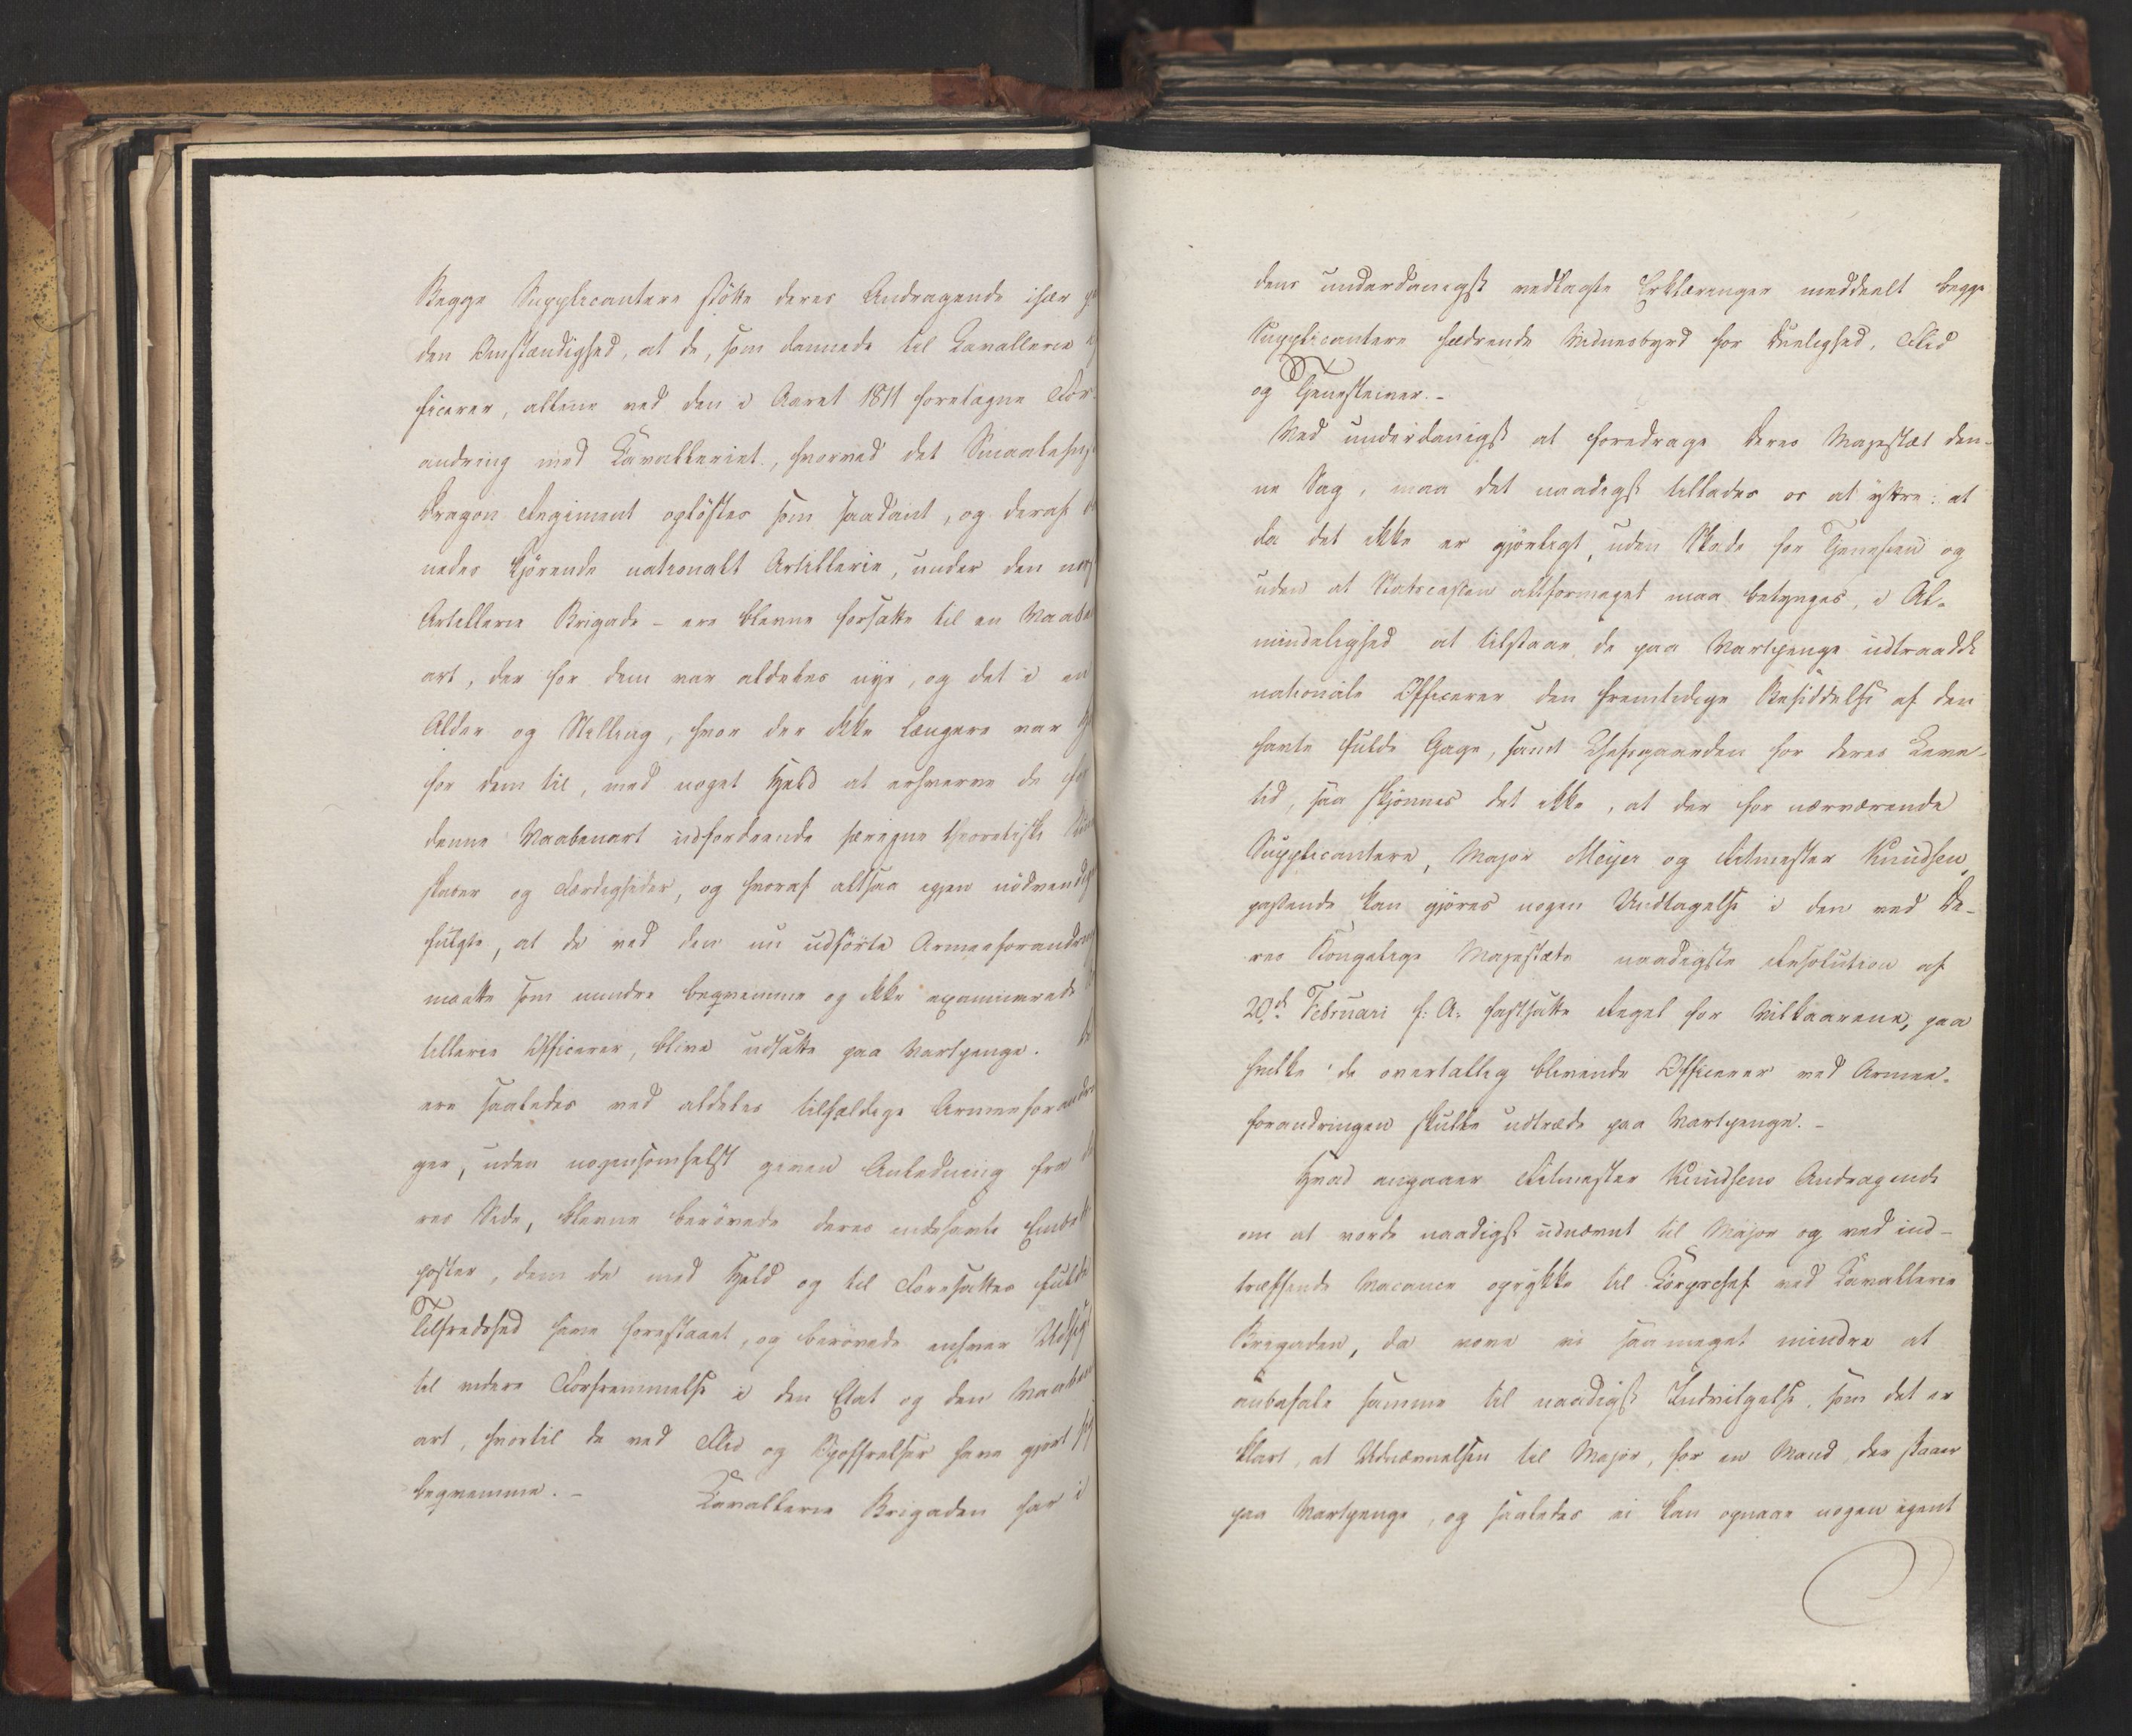 Begge Supplicantere støtte deres Andragende især
den Omstændighed, at de, som dannede til Cavallerie
ficerer, allene ved den i Aaret 1811 foretagne For-
andring med Kavalleriet, hvorved det Smaalehnske
Dragon Regiment opløstes som saadant, og deraf
nedes kjørende nationalt Artillerie, under den
Artillerie Brigade - ere blevne forsatte til en Vaaben
art, der for dem var aldeles nye, og det i en
Alder og Stilling, hvor der ikke længere var
for dem til, med noget Held at erhverve de
denne Vaabenart udfordrende særegne theoretiske
skaber og Færdigheder, og hvoraf altsaa igjen nødvendig
fulgte, at de ved den nu udførte Armeeforandring
maatte som mindre beqvemme og ikke examinerede
tillerie Officerer, blive udsatte paa Vartpenge.
ere saaledes ved aldeles tilfældige Armeeforandrin
ger, uden nogensomhelst given Anledning fra
res Side, blevne berøvede deres indehavte Embeds
poster, dem de med Held og til Foresattes fulde
Tilfredshed have forestaaet, og berøvede enhver Udsigt
til videre Forfremmelse i den Etat og den Vaaben
art, hvortil de ved Flid og Opoffrelser have gjort sig
beqvemme. - Cavallerie Brigaden har i
dens underdanigst vedlagte Erklæringer meddeelt begge
Supplicantere hædrende Vidnesbyrd for Duelighed, Flid
og Tjenesteiver. -
Ved underdanigst at foredrage Deres Majestæt den-
ne Sag, maa det naadigst tillades os at yttre: at
da det ikke er gjørligt, uden Skade for Tjenesten og
uden at Statscassen altformeget maa betynges, i Al-
mindelighed at tilstaae de paa Vartpenge udtraadte
nationale Officerer den fremtidige Besiddelse af den
havte fulde Gage, samt Chefsgaarden for deres Leve-
tid, saa skjønnes det ikke, at der for nærværende
Supplicantere, Major Meyer og Ritmester Knudsen,
passende kan gjøres nogen Undtagelse i den ved De-
res Kongelige Majestæts naadigste Resolution af
20de Februari f: A: fastsatte Regel for Vilkaarene, paa
hvilke de overtallig blivende Officerer ved Armee-
forandringen skulle udtræde paa Vartpenge. -
Hvad angaaer Ritmester Knudsens Andragende
om at vorde naadigst udnævnt til Major og ved ind-
træffende Vacance oprykke til Corpschef ved Cavallerie
Brigaden, da vove vi saameget mindre at
anbefale samme til naadigst Indvilgelse, som det er
klart, at Udnævnelsen til Major, for en Mand, der staaer
paa Vartpenge, og saaledes ei kan opnaae nogen egent